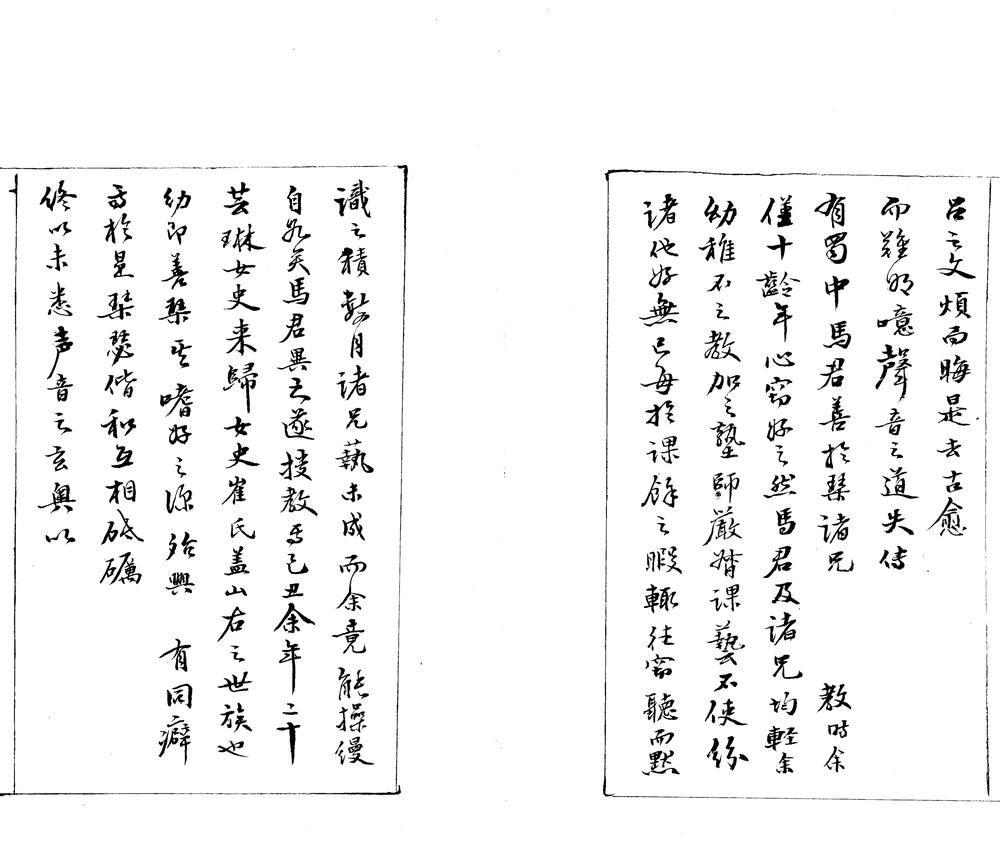 呂之文煩而晦是去古愈
而難明噫聲音之道失傳
有蜀中馬君善於琴諸兄 教時余
僅十齡年心窃好之然馬君及諸兄均軽余
幼稚不之教加之塾師嚴督課藝不使紛
諸他好無已每於課餘之暇輒往窃聽而默
識之積數月諸兄藝未成而余竟能操縵
自如矣馬君異之遂授教焉己丑余年二十
芸琳女史来歸女史崔氏盖山右之世族也
幼即善琴其嗜好之深殆與 有同癖
焉於是琴瑟偕和互相砥礪
修以未悉声音之玄奥以